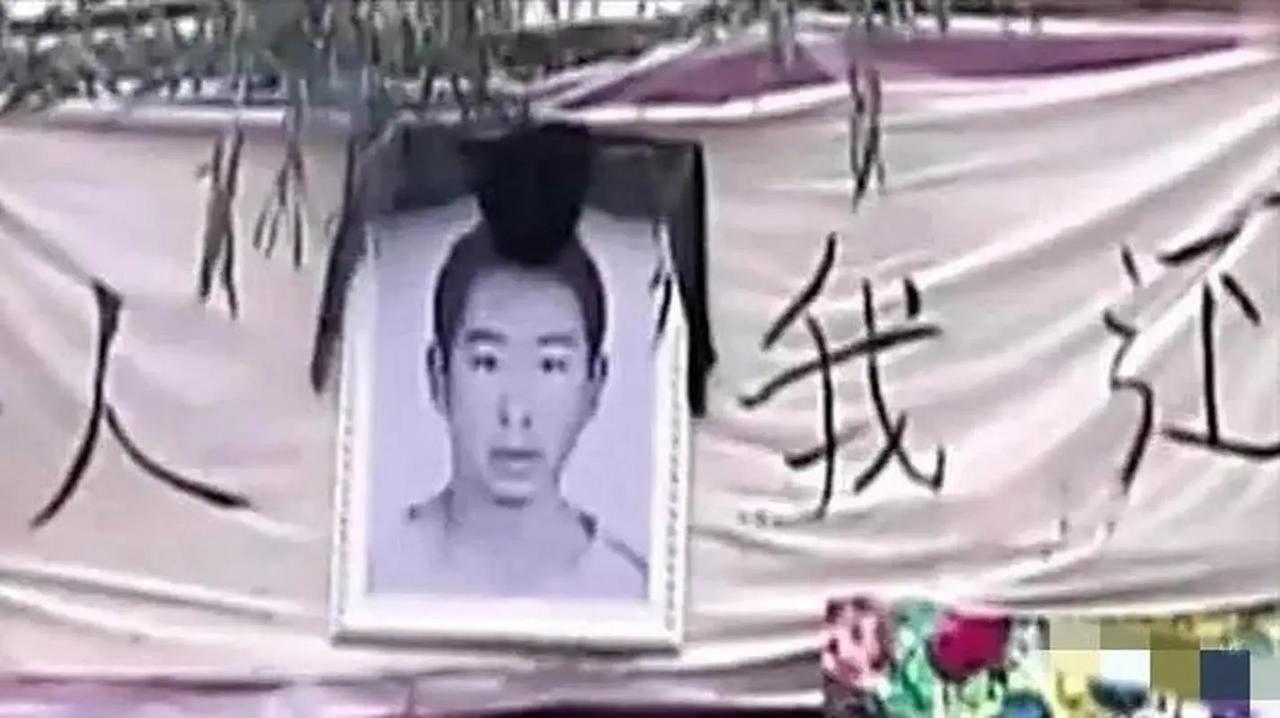 还我人